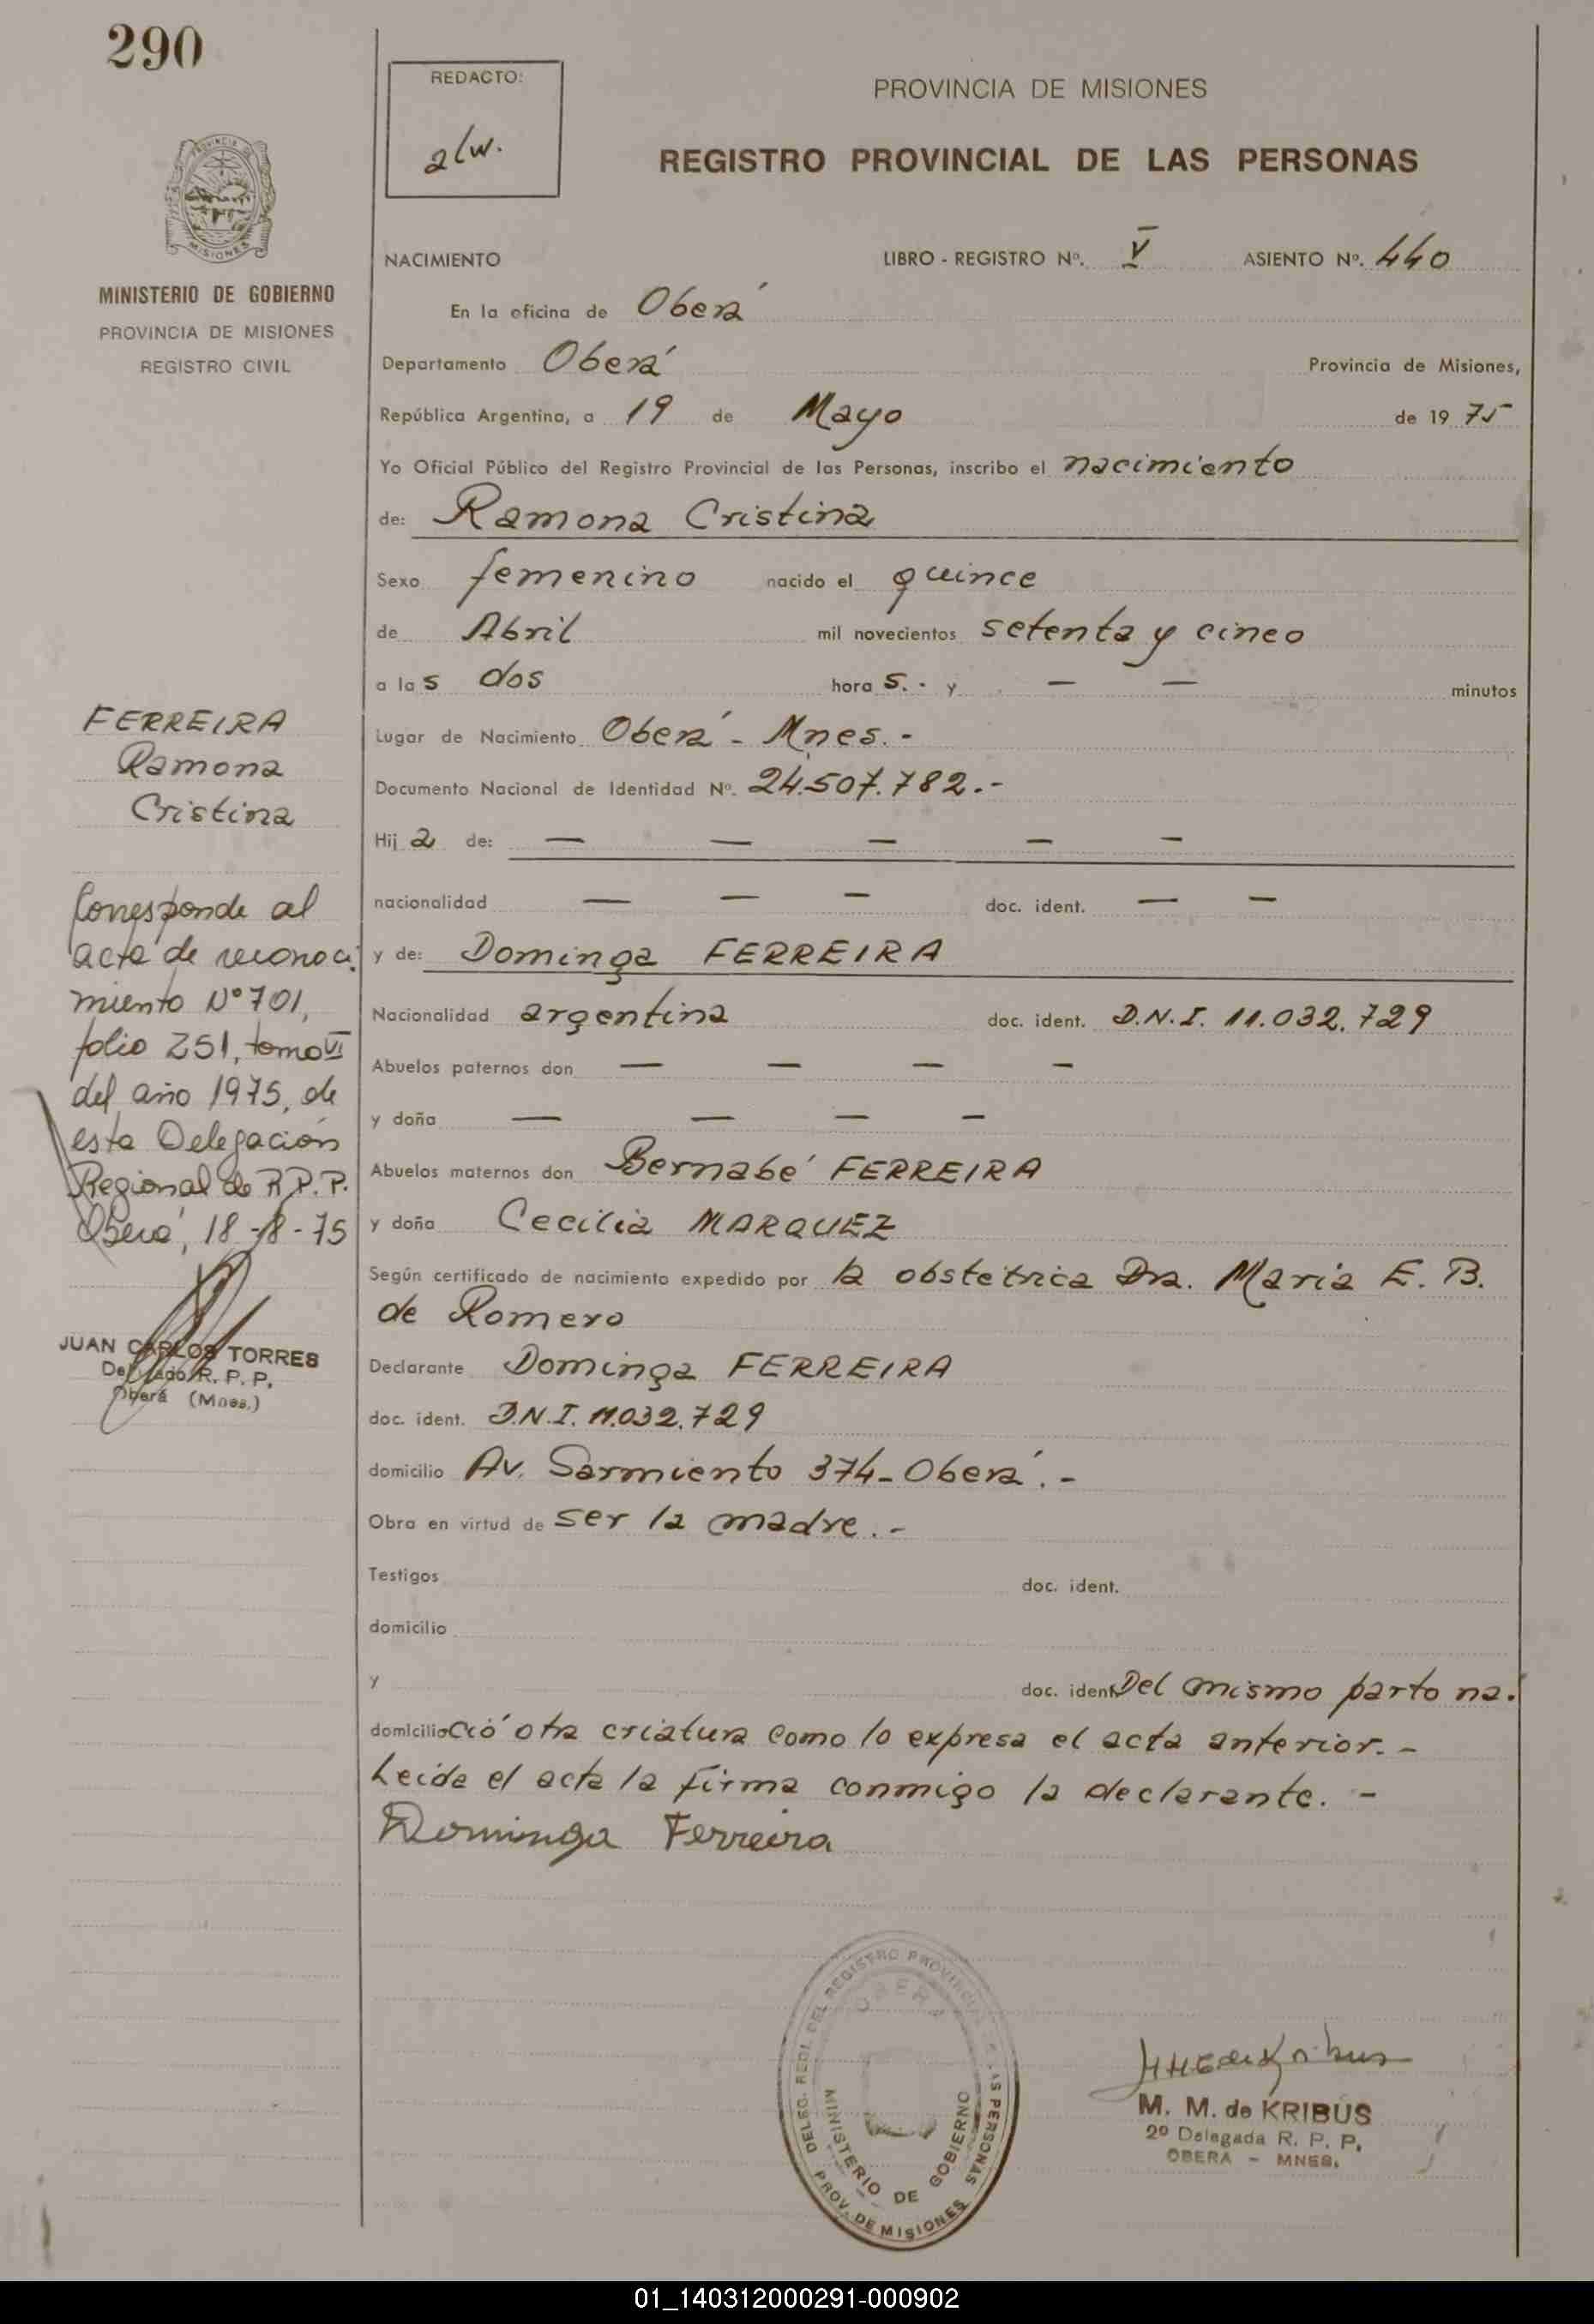 290
REDACTO:
PROVINCIA DE MISIONES
REGISTRO PROVINCIAL DE LAS PERSONAS
MINISTERIO DE GOBIERNO
PROVINCIA DE MISIONES
REGISTRO CIVIL
NACIMIENTO LIBRO - REGISTRO Nº. V ASIENTO Nº. 440
En la oficina de Oberá
Departamento Oberá Provincia de Misiones,
República Argentina, a 19 de Mayo de 1975
Yo Oficial Público del Registro Provincial de las Personas, inscribo el nacimiento
de: Ramona Cristina
Sexo femenino nacido el quince
de Abril mil novecientos setenta y cinco
a las dos horas.- y — — minutos
Lugar de Nacimiento Oberá - Mnes.-
Documento Nacional de Identidad Nº. 24.507.782.-
Hija de: — — — — —
nacionalidad — — — doc. ident. — —
y de: Dominga FERREIRA
Nacionalidad argentina doc. ident. D.N.I. 11.032.729
Abuelos paternos don — — — —
y doña — — — —
Abuelos maternos don Bernabé FERREIRA
y doña Cecilia MARQUEZ
Según certificado de nacimiento expedido por la obstétrica Dra. Maria E. B.
de Romero
Declarante Dominga FERREIRA
doc. ident. D.N.I. 11.032.729
domicilio Av. Sarmiento 374-Oberá.-
Obra en virtud de ser la madre.-
Testigos doc. ident.
domicilio
y doc. ident. Del mismo parto na-
domicilio ció otra criatura como lo expresa el acta anterior.-
Leida el acta la firma conmigo la declarante. -
Dominga Ferreira
FERREIRA
Ramona
Cristina
Corresponde al
acta de reconoci
miento Nº 701,
folio 251, tomo VI
del año 1975, de
esta Delegación
Regional de R.P.P.
Oberá, 18-8-75
JUAN CARLOS TORRES
Delegado R. P. P.
Oberá (Mnes.)
DELEG. REGI. DEL REGISTRO PROVINCIAL DE LAS PERSONAS
OBERA
MINISTERIO DE GOBIERNO
PROV. DE MISIONES
M. M. de KRIBUS
2º Delegada R. P. P.
OBERA - MNES.
01_140312000291-000902